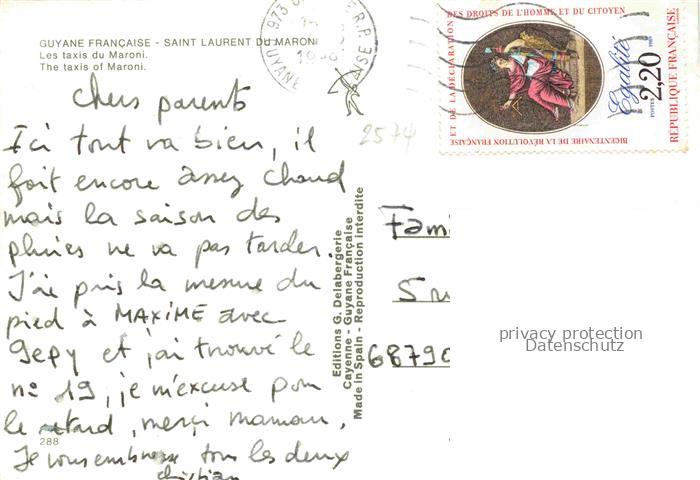 GUYANE FRANÇAISE - SAINT LAURENT DU MARONI
Les taxis du Maroni.
The taxis of Maroni.
chers parents
Ici tout va bien, il
fait encore assez chaud
mais la saison des
pluies ne va pas tarder.
J'ai pris la mesure du
pied à MAXIME avec
Gepy et j'ai trouvé le
nº 19, je m'excuse pour
le retard, merci maman.
Je vous embrasse tous les deux
christian
288
Editions G. Delabergerie
Cayenne - Guyane Française
Made in Spain - Reproduction interdite
2574
973
GUYANE
BICENTENAIRE DE LA RÉVOLUTION FRANÇAISE
ET DE LA DÉCLARATION
DES DROITS DE L'HOMME ET DU CITOYEN
Egalité
POSTES 1989
2,20
RÉPUBLIQUE FRANÇAISE
Fam
6879
privacy protection
Datenschutz